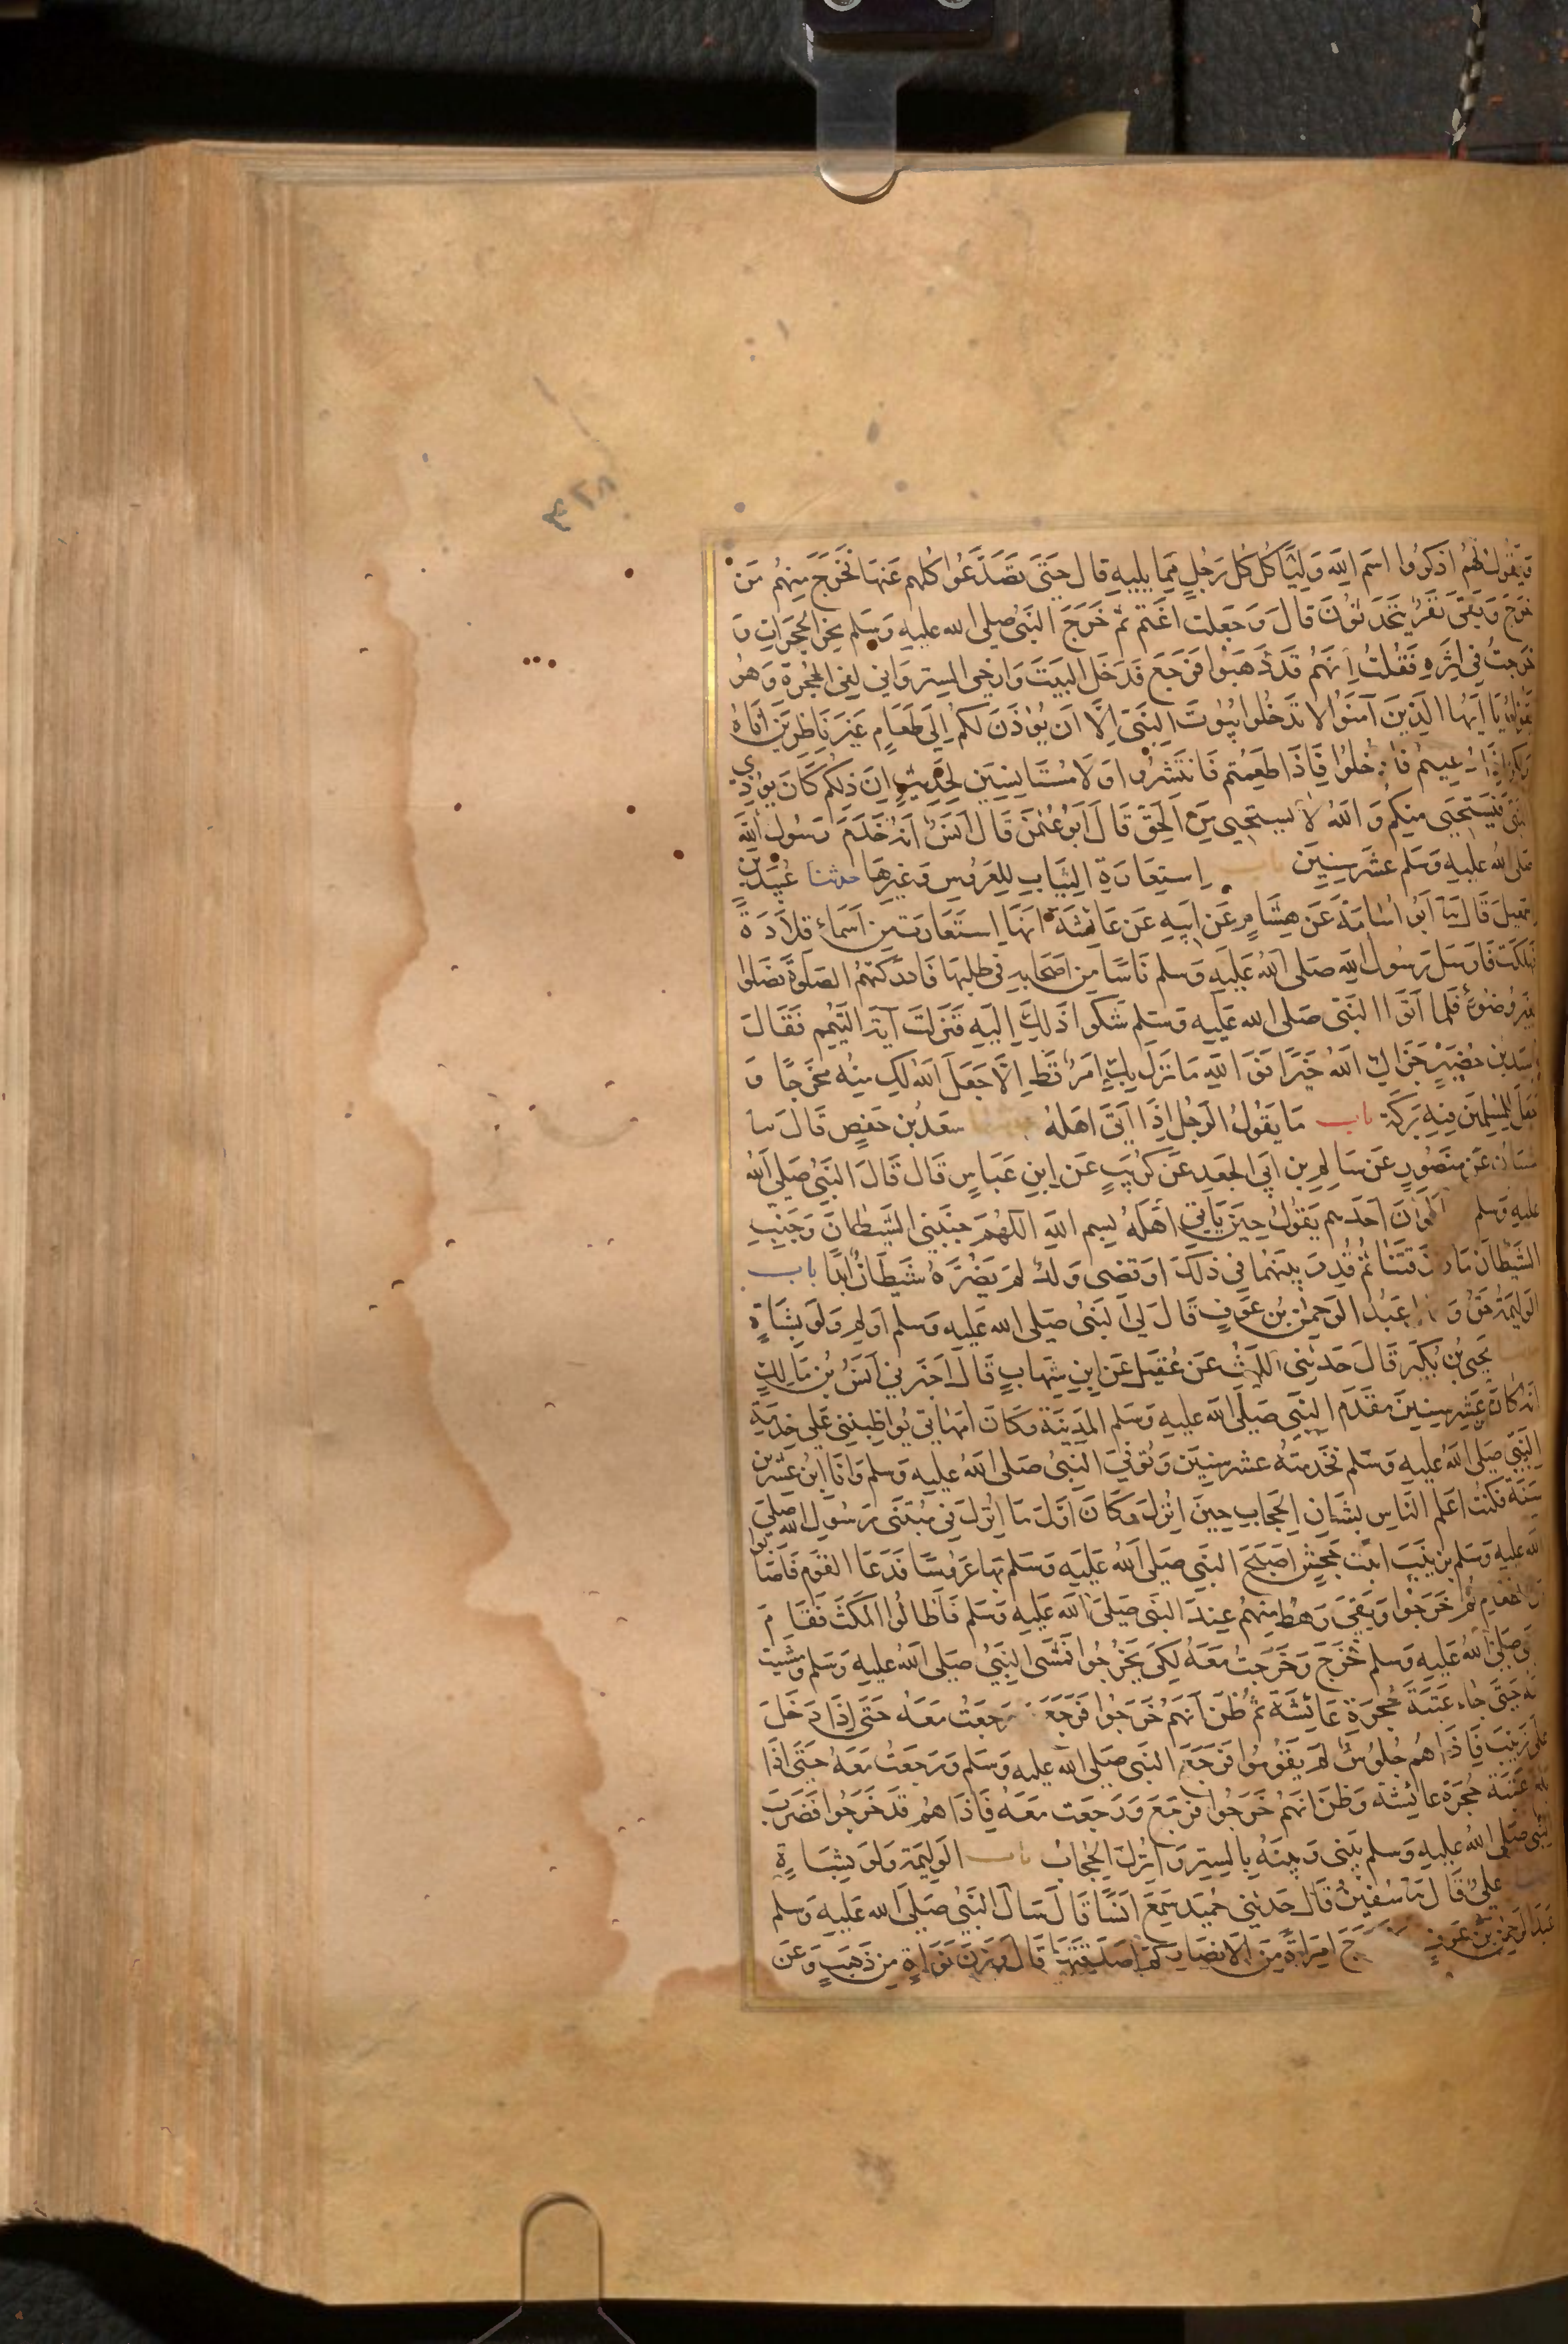 ٣٢٨
وَيَقُولُ لَهُمُ اذكُرُوا اسمَ اللَّهِ وَليَأكُل كُلُّ رَجُلٍ مِمَّا يَلِيهِ قالَ حَتَّى تَصَدَّعُوا كُلُّهم عَنهَا فَخَرَجَ مِنهُم مَن
خَرَجَ وَبَقِىَ نَفَرٌ يَتَحَدَّثُونَ قَالَ وَجَعَلت اَغتَمُّ ثم خَرَجَ النَّبىُّ صلى الله عليه وَسَلم نحو الحُجُرَاتِ وَ
خَرَجتُ فى اِثرِهِ فَقُلتُ اِنَّهُم قَد ذَهَبُوا فَرَجَعَ فَدَخَلَ البَيتَ وَارخى الستر وَانى لفى الحُجرَةِ وَهُوَ
يَقُولُ يَا اَيُّهَا الَّذِينَ آمَنُوا لا تَدخُلوا بُيُوتَ النَّبىِّ اِلَّا اَن يُؤذَنَ لَكُم اِلَى طَعَامٍ غَيرَ نَاظِرِينَ اِنَاهُ
وَلكِن اِذَا دُعِيتُم فَادخُلوُا فَاِذَا طَعِمتُم فَانتَشِرُوا وَلَا مُستَانِسِينَ لِحَدِيثٍ اِنَّ ذلِكُم كَانَ يُؤذِى
النَّبىَّ فَيَستَحيِى مِنكُم وَاللهُ لَا يستحيى مِنَ الحَقِّ قَالَ اَبُو عُثمٰنَ قَالَ اَنَسٌ اَنَّهُ خَدَمَ رَسُولَ اللهِ
صَلى اللهُ عَلَيهِ وَسَلم عَشرَ سِنِينَ باب اِستِعَارَةِ الثِّيَابِ لِلعَرُوسِ وَغَيرِهَا حدثنا عُبَيدُ بنُ
اِسمٰعِيلَ قَالَ ثنا اَبُو اُسَامَةَ عَن هِشَامٍ عَن اَبِيهِ عَن عَائِشَةَ اَنَّهَا اِستَعَارَت مِن اَسمَاءَ قِلَادَةً
فَهَلَكَت فَاَرسَلَ رَسُولُ اللهِ صَلى اللهُ عَلَيهِ وَسلم نَاسًا مِن اَصحَابِهِ فى طَلَبِهَا فَادرَكَتهُمُ الصَّلوٰةُ فَصَلَّوا
بِغَيرِ وُضُوءٍ فَلَمَّا اَتَوا النَّبىَّ صَلى الله عَلَيهِ وَسَلم شَكَوا ذَلِكَ اِلَيهِ فَنَزَلَت آيَةُ التَّيَمُّمِ فَقَالَ
اُسَيدُ بنُ حُضَيرٍ جَزَاكِ اللهُ خَيرًا فَوَاللهِ مَا نَزَلَ بِكِ اَمرٌ قَطُّ اِلَّا جَعَلَ اللهُ لَكِ مِنهُ مَخرَجًا وَ
جَعَلَ لِلمُسلِمينَ فِيهِ بَرَكَةً باب مَا يَقُولُ الرَّجُلُ اِذَا اَتَى اَهلَهُ حدثنا سَعدُ بنُ حَفصٍ قَالَ ثنا
شَيبَانُ عَن مَنصُورٍ عَن سَالِمِ بنِ اَبى الجَعدِ عَن كُرَيبٍ عَنِ ابنِ عَبَّاسٍ قَالَ قَالَ النَّبىُّ صَلى اللهُ
عليه وَسلم اَمَا لَو اَنَّ اَحَدَهم يَقُولُ حِينَ يَأتِى اَهلَهُ بِسمِ اللهِ اللهُمَّ جَنِّبنى الشَّيطَانَ وَجَنِّبِ
الشَّيطَانَ مَا رَزَقتَنَا ثُمَّ قُدِّرَ بَينَهُمَا فِى ذَلِكَ اَو قضى وَلَدٌ لَم يَضُرَّهُ شَيطَانٌ اَبَدًا باب
الوَلِيمَةُ حَقٌّ وَقَالَ عَبدُ الرحمٰن بنُ عَوفٍ قَالَ لى النَّبىُّ صَلى الله عَلَيهِ وَسلم اَولِم وَلَو بِشَاةٍ
حدثنا يَحيَى بنُ بُكَيرٍ قَالَ حَدَّثَنِى اللَّيثُ عَن عُقَيلٍ عَنِ ابنِ شِهَابٍ قَالَ اَخبَرَنى اَنَسُ بنُ مَالِكٍ
اَنَّهُ كَانَ ابن عَشرِ سِنِينَ مَقدَمَ النَّبىِّ صَلَّى اللهُ عَليهِ وَسَلم المَدِينَةَ وَكَانَ اُمَّهَاتى يُوَاظِبنَنِى عَلَى خِدمَةِ
النَّبِىِّ صَلَّى اللهُ عَلَيهِ وَسَلم فَخَدَمتُهُ عشر سِنِينَ وَتُوُفِّىَ النَّبىُّ صَلى اللهُ عليه وسلم وَاَنَا ابنُ عِشرِينَ
سَنَةً فَكُنتُ اَعلَمَ النَّاسِ بِشَأنِ الحِجَابِ حِينَ اُنزِلَ وَكَانَ اَوَّلَ مَا اُنزِلَ فى مُبتَنَى رَسُولِ الله صَلَّى
الله عليه وَسَلم بِزَينَبَ ابنَت جَحشٍ اَصبَحَ النَّبىُّ صَلى اللهُ عَلَيهِ وَسَلم بِهَا عَرُوسًا فَدَعَا القَومَ فَاَصَابُوا
مِنَ الطَّعَامِ ثُمَّ خَرَجُوا وَبَقِىَ رَهطٌ مِنهُم عِندَ النَّبىِّ صَلى اللهُ عَلَيهِ وَسَلم فَاَطَالُوا المُكثَ فَقَامَ
النَّبىُّ صَلى اللهُ عَلَيهِ وَسلم فَخَرَجَ وَخَرَجتُ مَعَهُ لِكَى يَخرُجُوا فَمَشَى النَّبىُّ صَلى اللهُ عليه وَسَلم وَمَشَيتُ
مَعَهُ حَتَّى جَاءَ عَتَبَةَ حُجرَةِ عَائِشَةَ ثُمَّ ظَنَّ اَنَّهُم خَرَجُوا فَرَجَعَ وَرَجَعتُ مَعَهُ حَتَّى اِذَا دَخَلَ
عَلَى زَينَبَ فَاِذَا هُم جُلُوسٌ لَم يَقُومُوا فَرَجَعَ النَّبىُّ صَلى الله عليه وسَلم وَرَجَعتُ مَعَهُ حَتَّى اِذَا
بَلَغَ عَتَبَةَ حُجرَةِ عَائِشَةَ وَظَنَّ اَنَّهُم خَرَجُوا فَرَجَعَ وَرَجَعت مَعَهُ فَاِذَا هُم قَد خَرَجُوا فَضَرَبَ
النَّبىُّ صَلى اللهُ عَلَيهِ وَسلم بَينِى وَبَينَهُ بِالسِّترِ وَاُنزِلَ الحِجَابُ باب الوَلِيمَةِ وَلَو بِشَاةٍ
حدثنا عَلِىٌّ قَالَ ثنا سُفيٰنُ قَالَ حَدَّثَنِى حُمَيدٌ سَمِعَ اَنَسًا قَالَ سَاَلَ النَّبىُّ صَلَّى الله عَلَيهِ وَسلم
عَبدَ الرحمٰن بنَ عَوفٍ امرَاَةً مِنَ الاَنصَارِ كَم اَصدَقتَهَا قَالَ وَزنَ نَوَاةٍ مِن ذَهَبٍ وَعَن